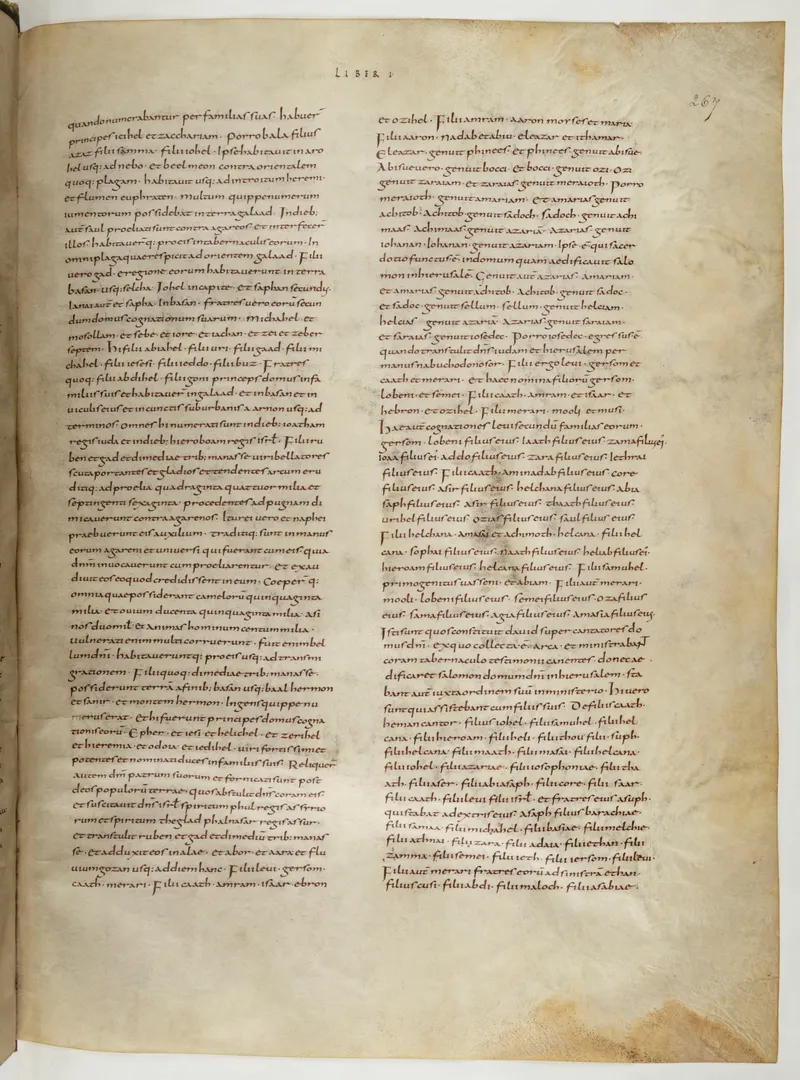 LIBER I
267
quando numerabantur per familias suas. habuer̅
principes ieihel et zacchariam. Porro bala filius
azaz filii samma. filii iohel. Ipse habitauit in aro
hel usq; ad nebo. et beelmeon contra orientalem
quoq; plagam. habitauit usq; ad introitum heremi.
et flumen euphraten. Multum quippe numerum
iumentorum possidebat in terra galaad. In dieb;
aut̅ saul proeliati sunt contra agareos. et interfecer̅
illos. habitauer̅q; pro eis in tabernaculis eorum. In
omni plaga quae respicit ad orientem galaad. Filii
uero gad. e regione eorum habitauerunt in terra
basan. usq; selcha. Iohel in capite. et saphan secundus.
Ianai aut̅ et sapha. In basan. fratres uero eoru̅ secun
dum domus cognationum suarum. Michahel. et
mosollam. et sebe. et iore. et iachan. et zei et zeber
septem. Hi filii abiahel. filii uri. filii gaad. filii mi
chahel. filii iesesi. filii ieddo. filii buz. Fratres
quoq; filii abdihel. filii goni princeps domus in fa
miliis suis et habitauer̅ in galaad. et in basan et in
uiculis eius et in cunctis suburbanis aaron usq; ad
terminos. Omnes hi numerati sunt in dieb; ioatham
regis iuda et in dieb; hieroboam regis isrl̅. Filii ru
ben et gad et dimediae trib; manasse uiri bellatores
scuta portantes et gladios et tendentes arcum eru
ditiq; ad proelia. quadraginta quattuor milia et
septingenti sexaginta. procedentes ad pugnam di
micauerunt contra agarenos. Iturei uero et naphei
praebuerunt eis auxilium. traditiq; sunt in manus
eorum agareni et uniuersi qui fuerant cum eis quia
dn̅m inuocauerunt cum proeliarentur. et exau
diuit eos eo quod credidissent in eum. Coeper̅q;
omnia quae possiderant cameloru̅ quinquaginta
milia. et ouium ducenta quinquaginta milia. asi
nos duo mil̅. et animas hominum centum milia.
uulnerati enim multi corruerunt. fuit enim bel
lum dn̅i. habitaueruntq; pro eis usq; ad transmi
grationem. Filii quoq; dimediae trib; manasse.
possiderunt terra̅ a finib; basan usq; baal hermon
et sanir. et montem hermon. Ingens quippe nu
merus erat. et hi fuerunt principes domus cogna
tionis eoru̅. Epher. et iesi et helichel. et zerihel
et hieremia. et odoia. et iedihel. uiri fortissimi et
potentes et nominati duces in familiis suis. Reliquer̅
autem dm̅ patrum suorum et fornicati sunt post
deos populoru̅ terrae. quos abstulit dn̅s coram eis.
et suscitauit dn̅s isrl̅ spiritum phul regis assyrio
rum et spiritum theglad phalnasar regis assur.
et transtulit ruben et gad et dimediu̅ trib; manas
se. et adduxit eos in alae. et abor. et aara et flu
uium gozan usq; ad diem hanc. Filii leui. gersom.
caath. merari. Filii caath. amram. isaar. ebron
et ozihel. Filii amram. aaron moyses et maria.
Filii aaron. nadab et abiu. eleazar. et ithamar.
Eleazar. genuit phinees. et phinees. genuit abisue.
Abisue uero. genuit bocci. et bocci. genuit ozi. Ozi
genuit zaraiam. et zaraias genuit meraioth. Porro
meraioth. genuit amariam. et amarias genuit
achitob. Achitob. genuit sadoch. sadoch. genuit achi
maas. Achimaas. genuit azaria̅. Azarias. genuit
iohanan. Iohanan. genuit azariam. Ipse e̅ qui sacer
dotio functus e̅. in domum quam aedificauit salo
mon in hierusale̅. Genuit aut̅ azarias. amariam.
et amarias. genuit achitob. Achitob. genuit sadoc.
et sadoc. genuit sellum. sellum. genuit helciam.
helcias genuit azaria̅. Azarias. genuit saraiam.
et saraias. genuit iosedec. Porro iosedec. egressus e̅.
quando transtulit dn̅s iudam et hierusalem per
manus nabuchodonosor. Filii ergo leui. gersom et
caath et merari. et haec nomina filioru̅ gersom.
Lobeni. et semei. Filii caath. amram. et isaar. et
hebron. et ozihel. Filii merari. mooli et musi.
Hae aut̅ cognationes leui secundu̅ familias eorum.
gersom. lobeni filius eius. Iaath filius eius. zama filius ei.
ioaa filius ei. addo filius eius. zara filius eius. Iethrai
filius eius. Filii caath. aminadab filius eius. core.
filius eius. asir filius eius. helchana filius eius. abia
saph filius eius. asir filius eius. thaath filius eius.
urihel filius eius. ozias filius eius. saul filius eius.
Filii helchana. amasai et achimoth. helcana. filii hel
cana. sophai filius eius. naath filius eius. heliab filius ei.
hieroam filius eius. helcana filius eius. Filii samuhel.
primogenitus uasseni. et abiam. Filii aut̅ merari.
mooli. lobeni filius eius. semei filius eius. oza filius
eius. sama filius eius. agia filius eius. amasia filius eius.
Isti sunt quos constituit dauid super cantatores do
mus dn̅i. ex quo collecta e̅ arca. et ministrabant
coram tabernaculo testimonii canentes. donec ae
dificaret salomon domum dn̅i in hierusalem. sta
bant aut̅ iuxta ordinem suu̅ in ministerio. Hi uero
sunt qui assistebant cum filiis suis. De filiis caath.
heman cantor. filius iohel. filii samuhel. filii hel
cana. filii hieroam. filii heli. filii thou. filii suph.
filii helcana. filii maath. filii masai. filii helcana.
filii iohel. filii azariae. filii sophoniae. filii tha
ath. filii aser. filii abiasaph. filii core. filii saar.
filii caath. filii leui. filii isrl̅. et fratres eius asaph.
qui stabat a dextris eius. asaph filius barachiae.
filii samaa. filii michahel. filii basiae. filii melchie.
filii athnai. filii zara. filii adaia. filii ethan. filii
zamma. filii semei. filii ieth. filii iersom. filii leui.
Filii aut̅ merari fratres eoru̅ ad sinistra̅. ethan.
filius cusi. filii abdi. filii maloch. filii asabiae.